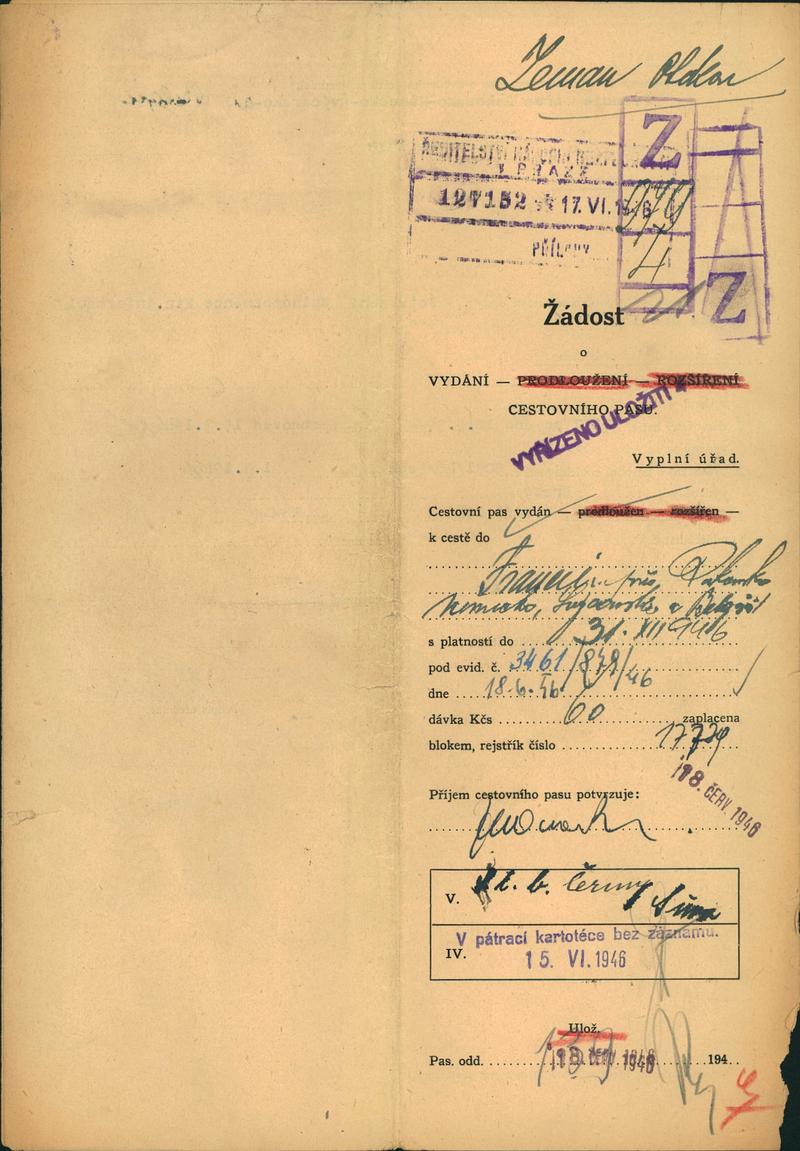 Zeman
ŘEDITELSTVÍ NÁRODNÍ
V PRAZE
127152 17. VI. 1946
PŘÍLOHY
Z
979
4
Z
Žádost
o
VYDÁNÍ — PRODLOUŽENÍ — ROZŠÍŘENÍ
CESTOVNÍHO PASU.
VYŘÍZENO ULOŽITI
Vyplní úřad.
Cestovní pas vydán — prodloužen — rozšířen —
k cestě do
Francie
Německo, a Belgie
s platností do 31. XII 1946
pod evid. č. 3461/878/46
dne 18.6.46
dávka Kčs 60 zaplacena
blokem, rejstřík číslo 17729
18. ČERV. 1946
Příjem cestovního pasu potvrzuje:
V. Černý
IV. V pátrací kartotéce bez záznamu.
15. VI. 1946
Ulož.
Pas. odd. 18. ČERV. 1946 194